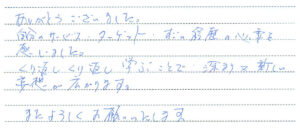 ありがとうございました。
自分のサービス ターゲット の 心を
感じました。
くり返しくり返し学ぶことで 深まり 新しい
発想が広がります。
またよろしくお願いいたします